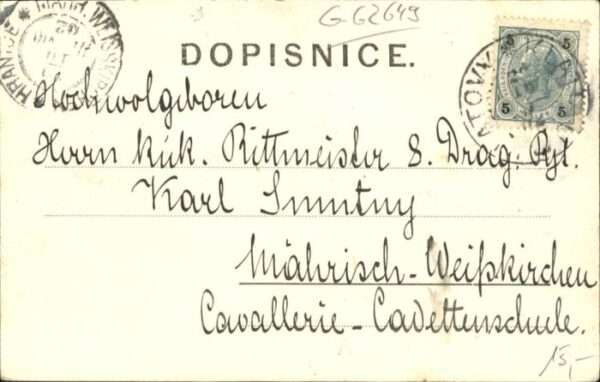 G-G2649
DOPISNICE.
Hochwolgeboren
Herrn k.u.k. Rittmeister 8. Drag. Rgt.
Karl
Mährisch-Weißkirchen
Cavallerie-Cadettenschule.
5 5
5 5
HRANICE * MÄHR. WEISSK
15,-